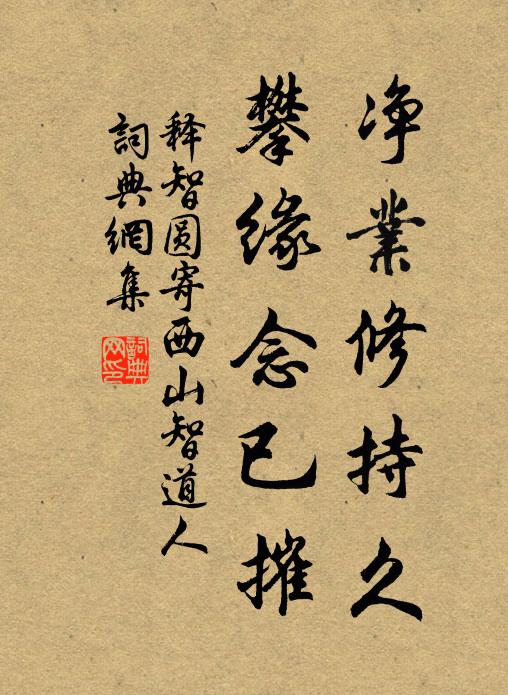 净業修持久
攀緣念已摧
释智圆寄西山智道人
詞典網集
詞典網印